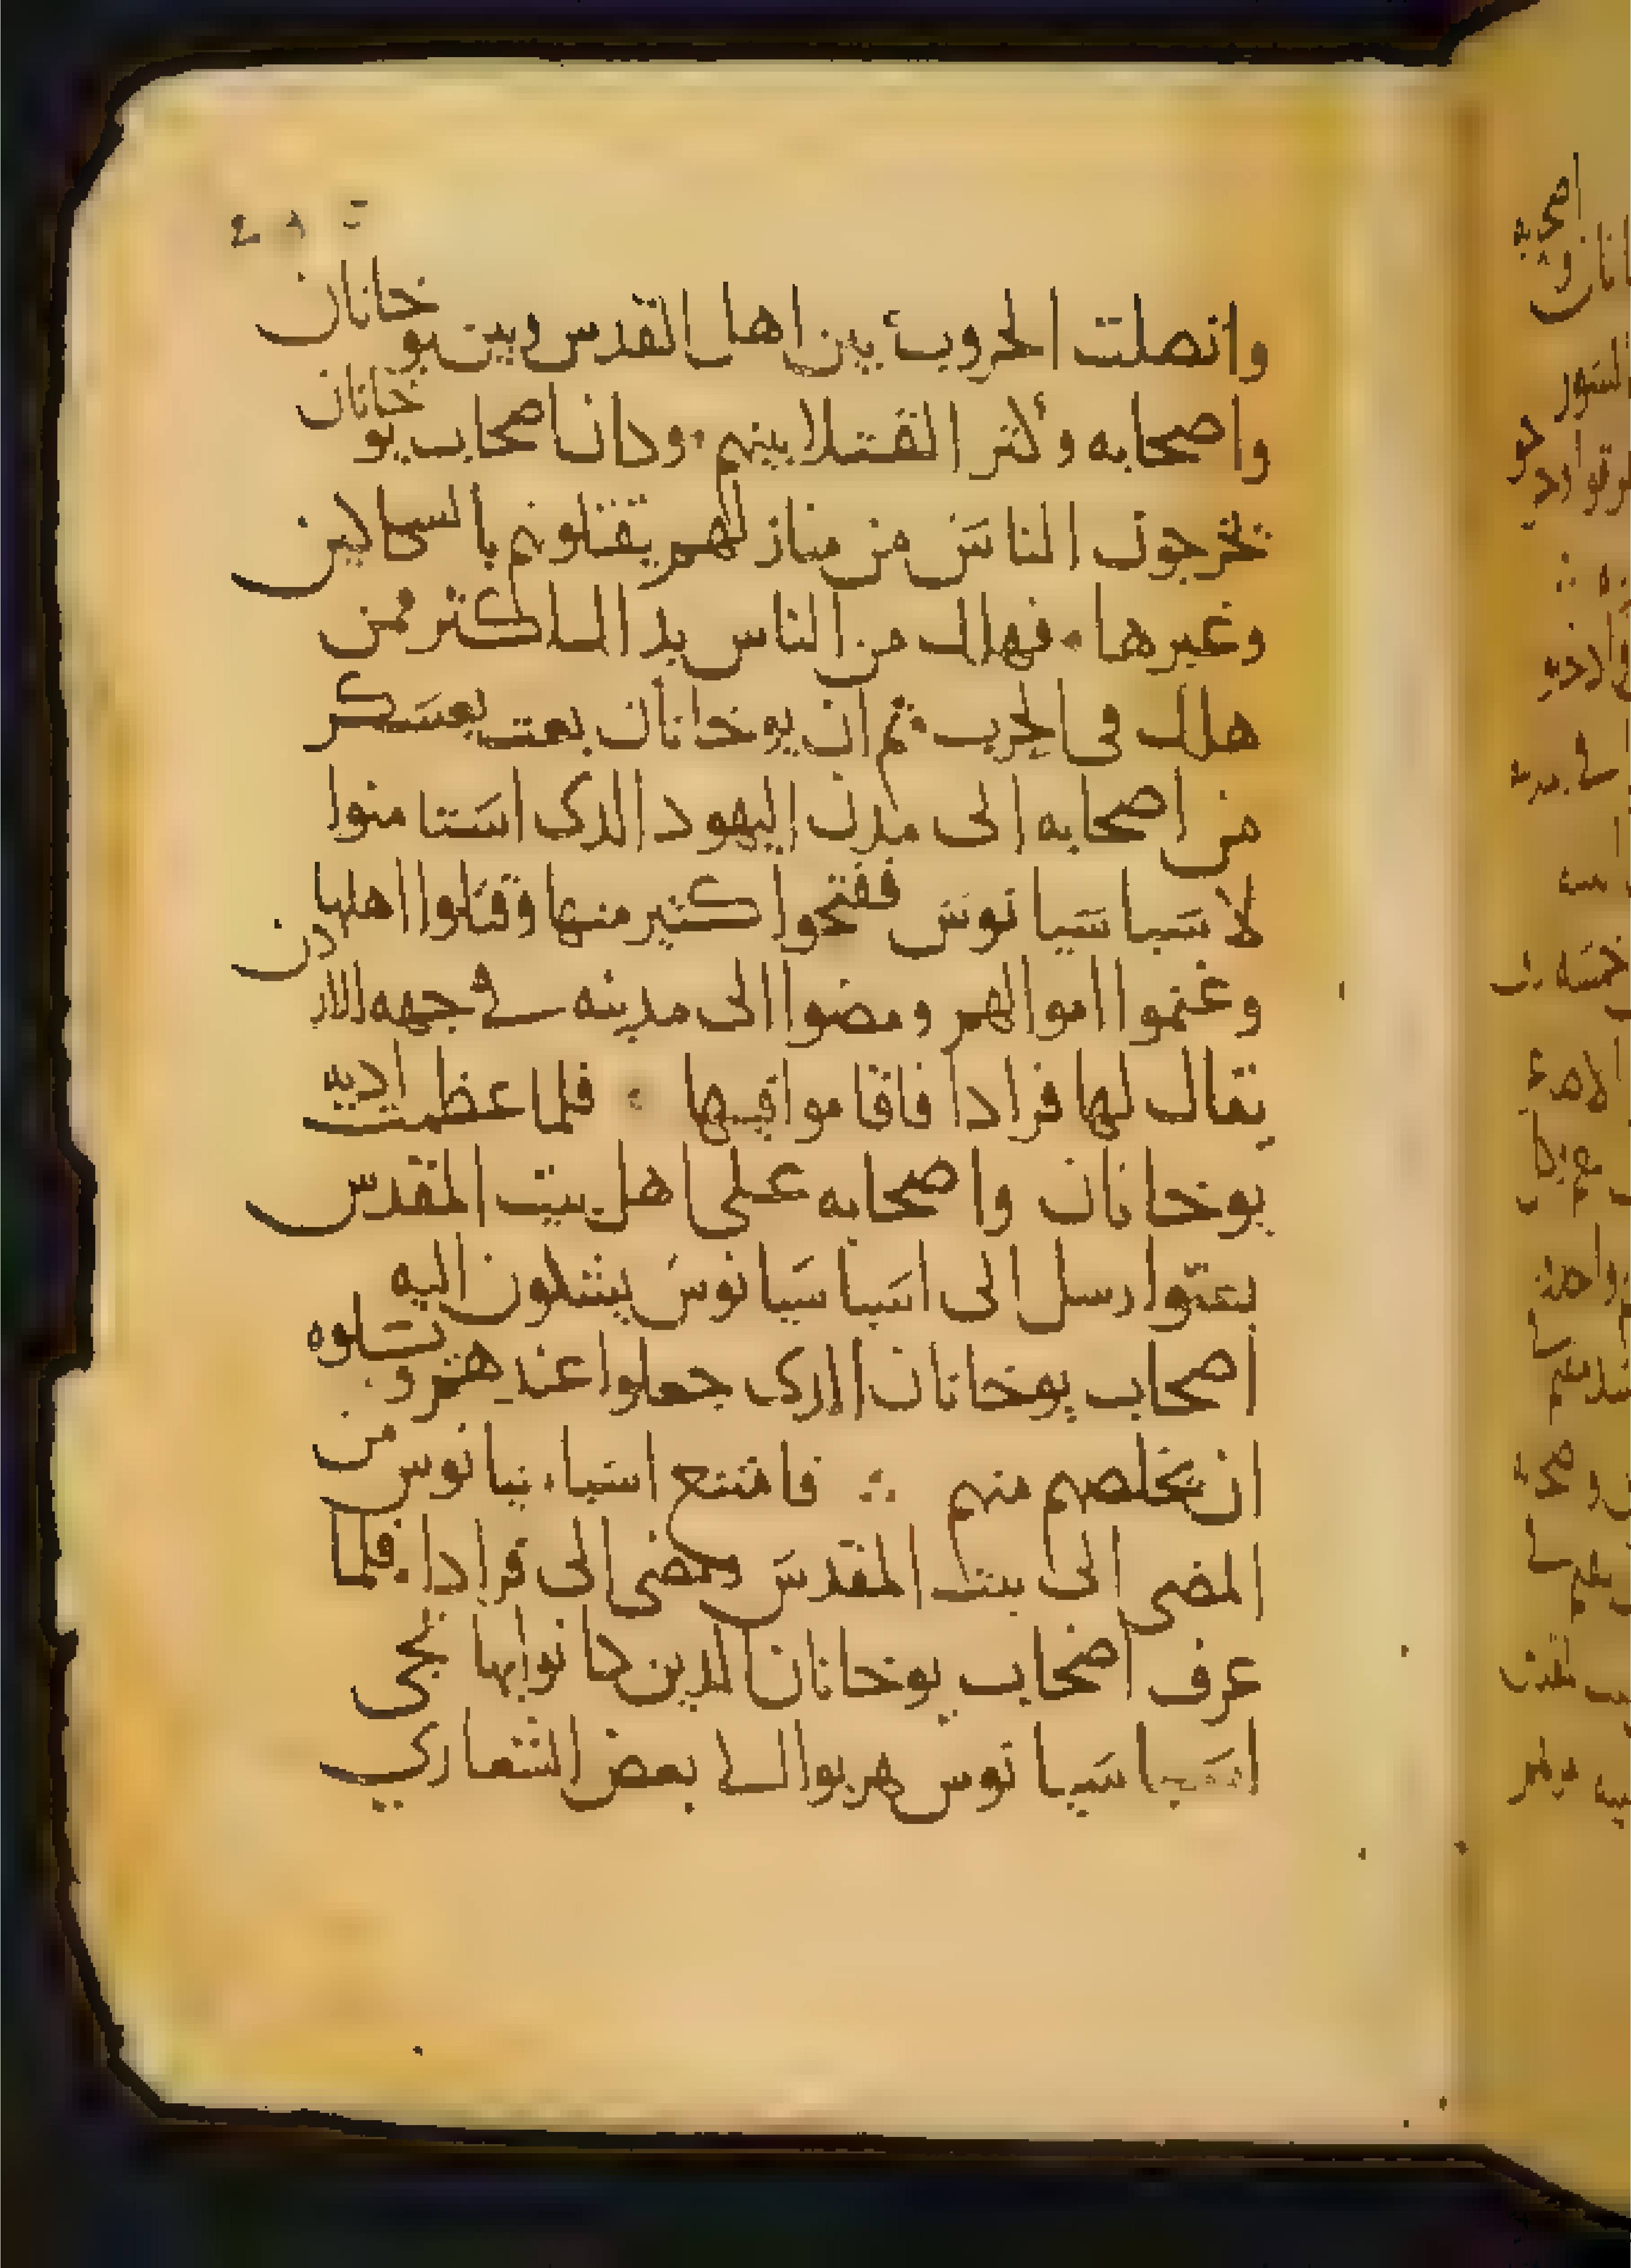 واتصلت الحروب بين اهل القدس وبين يوخانان
واصحابه وكثر القتلا بينهم وكان اصحاب يوخانان
يخرجون الناس من منازلهم يقتلونهم بالسكاكين
وغيرها فهلك من الناس بدالك اكثر ممن
هلك في الحرب ثم ان يوخانان بعت بعسكر
من اصحابه الى مدن اليهود الدى استامنوا
لاسباسيانوس ففتحوا كثير منها وقتلوا اهلها
وغنموا اموالهم ومضوا الى مدينه في جهه الاردن
يقال لها فرادا فاقاموا فيها فلما عظمت اديه
يوخانان واصحابه على اهل بيت المقدس
بعتوا رسل الى اسباسيانوس يشكون اليه
اصحاب يوخانان جعلوا عندهم وسلوه
ان يخلصهم منهم فامتنع اسباسيانوس من
المضى الى بيت المقدس ومضى الى فرادا فلما
عرف اصحاب يوخانان الدين كانوا بها بمجى
اسباسيانوس هربوا الى بعض الشعاري